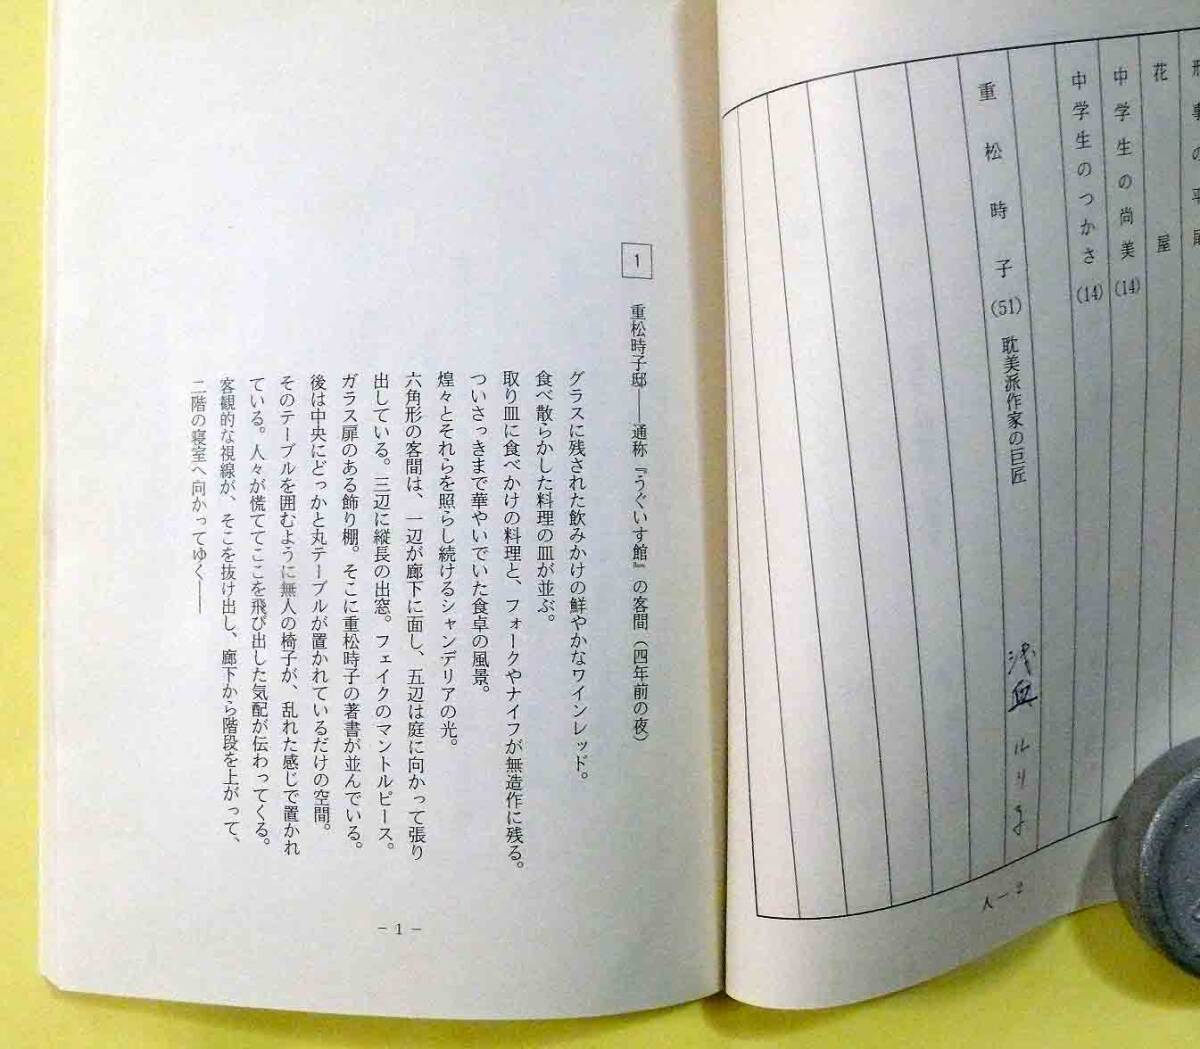 花屋
中学生の尚美(14)
中学生のつかさ(14)
重松時子(51) 耽美派作家の巨匠 浅丘ルリ子
人―2
1 重松時子邸――通称『うぐいす館』の客間(四年前の夜)
グラスに残された飲みかけの鮮やかなワインレッド。
食べ散らかした料理の皿が並ぶ。
取り皿に食べかけの料理と、フォークやナイフが無造作に残る。
ついさっきまで華やいでいた食卓の風景。
煌々とそれらを照らし続けるシャンデリアの光。
六角形の客間は、一辺が廊下に面し、五辺は庭に向かって張り
出している。三辺に縦長の出窓。フェイクのマントルピース。
ガラス扉のある飾り棚。そこに重松時子の著書が並んでいる。
後は中央にどっかと丸テーブルが置かれているだけの空間。
そのテーブルを囲むように無人の椅子が、乱れた感じで置かれ
ている。人々が慌ててここを飛び出した気配が伝わってくる。
客観的な視線が、そこを抜け出し、廊下から階段を上がって、
二階の寝室へ向かってゆく――
－1－